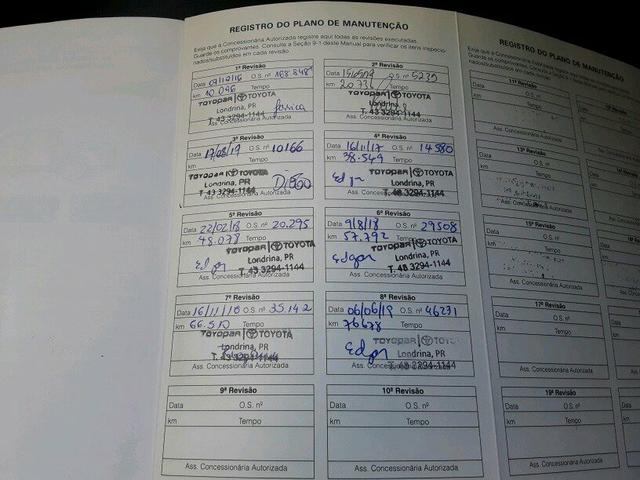 REGISTRO DO PLANO DE MANUTENÇÃO
Exija que a Concessionária Autorizada registre aqui todas as revisões executadas.
Guarde os comprovantes. Consulte a Seção 9-1 deste Manual para verificar os itens inspecio-
nados/substituídos em cada revisão.
1ª Revisão
Data O.S. nº
km 10.096
TOYOPAR TOYOTA
Londrina, PR
T. 43 3294-1144
Ass. Concessionária Autorizada
2ª Revisão
O.S. nº 5235
km Tempo
TOYOPAR TOYOTA
Londrina, PR
T. 43 3294-1144
Ass. Concessionária Autorizada
3ª Revisão
Data O.S. nº 10166
km Tempo
TOYOPAR TOYOTA
Londrina, PR
T. 43 3294-1144
Ass. Concessionária Autorizada
4ª Revisão
Data 16/11/17 O.S. nº 14580
km 38.549 Tempo
TOYOPAR TOYOTA
Edgar Londrina, PR
T. 43 3294-1144
Ass. Concessionária Autorizada
5ª Revisão
Data 22/02/18 O.S. nº 20.295
km 48.078 Tempo
TOYOPAR TOYOTA
Edgar Londrina, PR
T. 43 3294-1144
Ass. Concessionária Autorizada
6ª Revisão
Data 9/8/18 O.S. nº 29508
km 57.792 Tempo
TOYOPAR TOYOTA
Edgar Londrina, PR
T. 43 3294-1144
Ass. Concessionária Autorizada
7ª Revisão
Data 16/11/18 O.S. nº 35.142
km 66.510 Tempo
TOYOPAR TOYOTA
Londrina, PR
T. 43 3294-1144
Ass. Concessionária Autorizada
8ª Revisão
Data 06/06/19 O.S. nº 46231
km 76678 Tempo
TOYOPAR TOYOTA
Edgar Londrina, PR
T. 43 3294-1144
Ass. Concessionária Autorizada
9ª Revisão
Data O.S. nº
km Tempo
Ass. Concessionária Autorizada
10ª Revisão
Data O.S. nº
km Tempo
Ass. Concessionária Autorizada
REGISTRO DO PLANO DE MANUTENÇÃO
Exija que a Concessionária Autorizada
Guarde os comprovantes. Consulte a Seção
nados/substituídos em cada revisão.
11ª Revisão
Data O.S. nº
km Tempo
Ass. Concessionária Autorizada
13ª Revisão
Data O.S. nº
km Tempo
Ass. Concessionária Autorizada
15ª Revisão
Data O.S. nº
km Tempo
Ass. Concessionária Autorizada
17ª Revisão
Data O.S. nº
km Tempo
Ass. Concessionária Autorizada
19ª Revisão
Data O.S. nº
km Tempo
Ass. Concessionária Autorizada